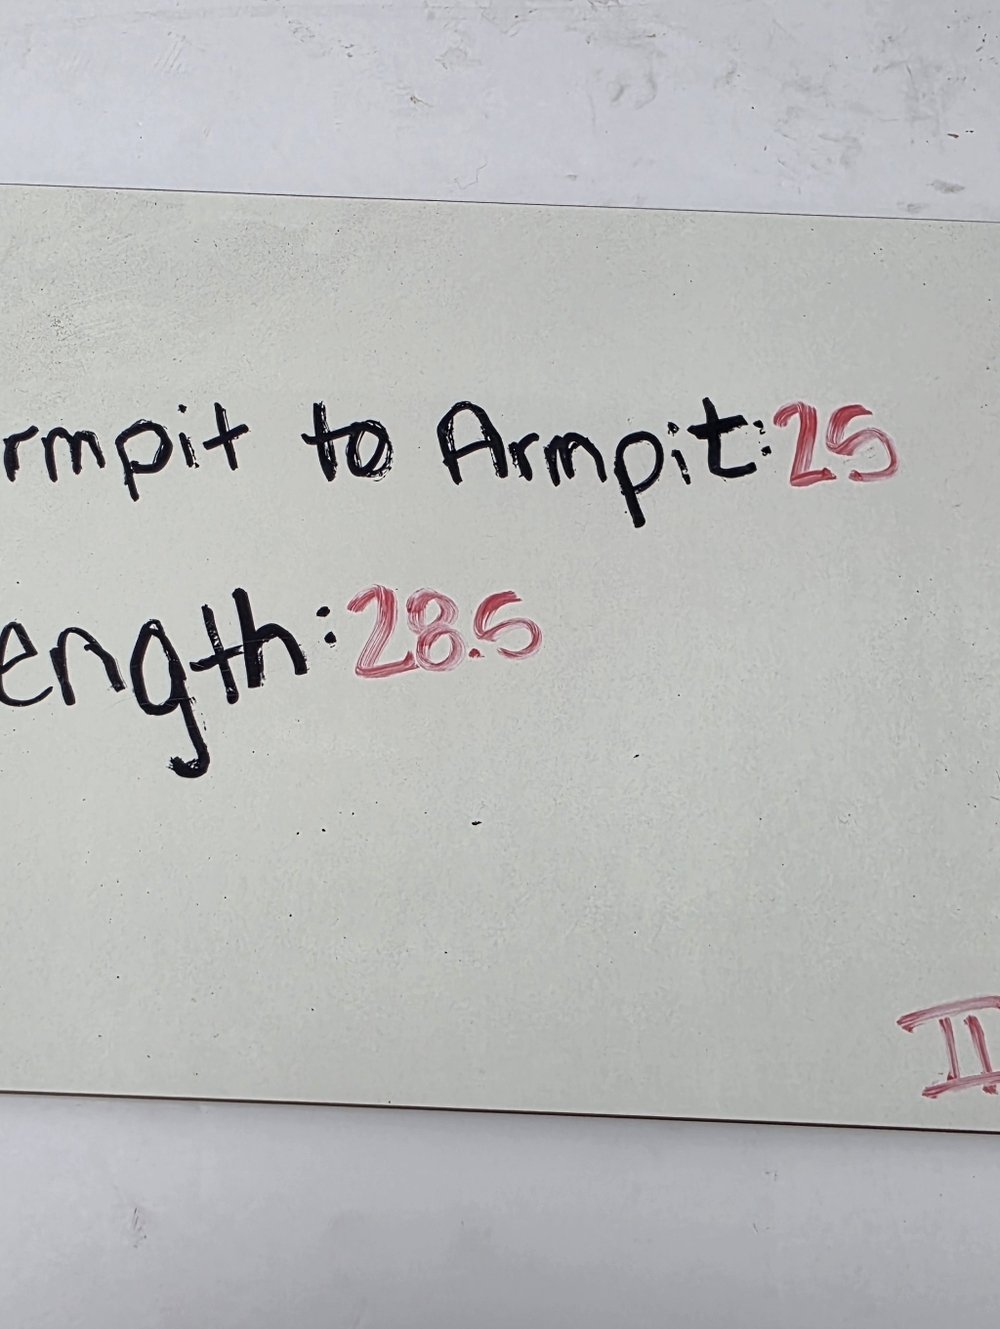 rmpit to Armpit: 25
ength: 28.5
II